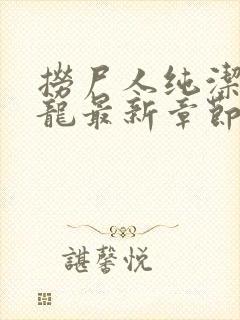 撈尸人纯潔
龍最新章節
諶馨悦